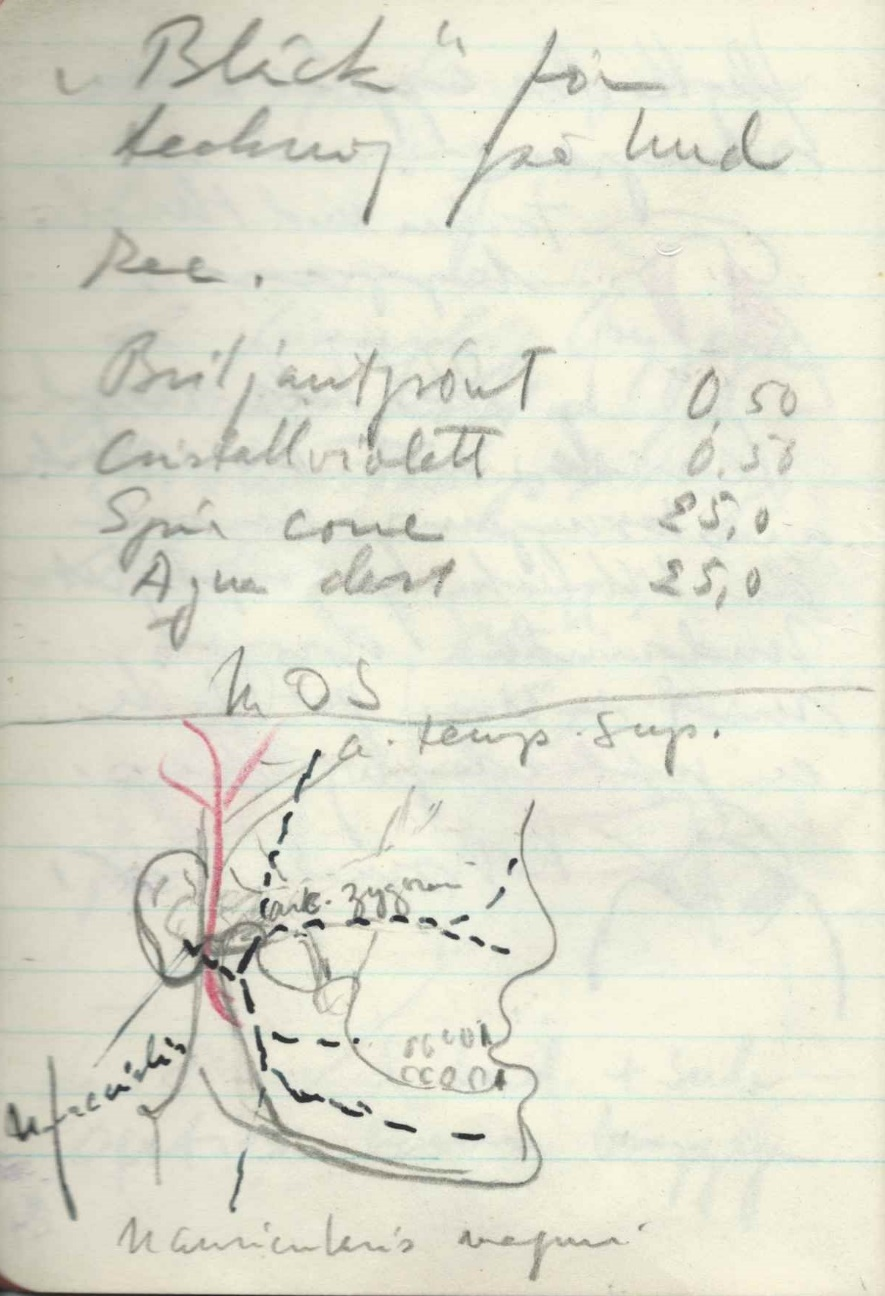 "Bläck" för
teckning på hud
Rec.
Briljantgrönt 0,50
Cristallviolett 0,50
Spir conc 25,0
Aqua dest 25,0
MDS
a. temp. sup.
arc. zygom
N. facialis
N auricularis magnus